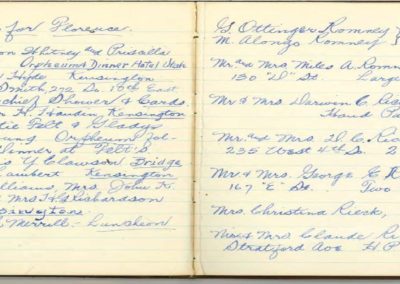 for Florence.
on Whitney and Priscilla
Orpheum & Dinner Hotel Utah
Hyde Kensington
Smith, 272 So. 10th East
chief Shower & Cards.
H. Hauden, Kensington
tie Pelt & Gladys
Orpheum & fol-
Dinner at Pelt's
Y Clawson Bridge
Lambert Kensington
lliams, Mrs. John K.
Mrs. H. S. Richardson
Merrill - Luncheon
G. Ottinger Romney
M. Alonzo Romney
Mr. and Mrs. Miles A. Romn
130 "D" St Large
Mr & Mrs. Darwin C.
Hand Pa
Mr. and Mrs. D. C.
235 West 4th So. 2
Mr & Mrs. George E. R
167 "E" St. Two
Mrs. Christina Rieck,
Mr & Mrs. Claude Ri
Stratford Ave H P